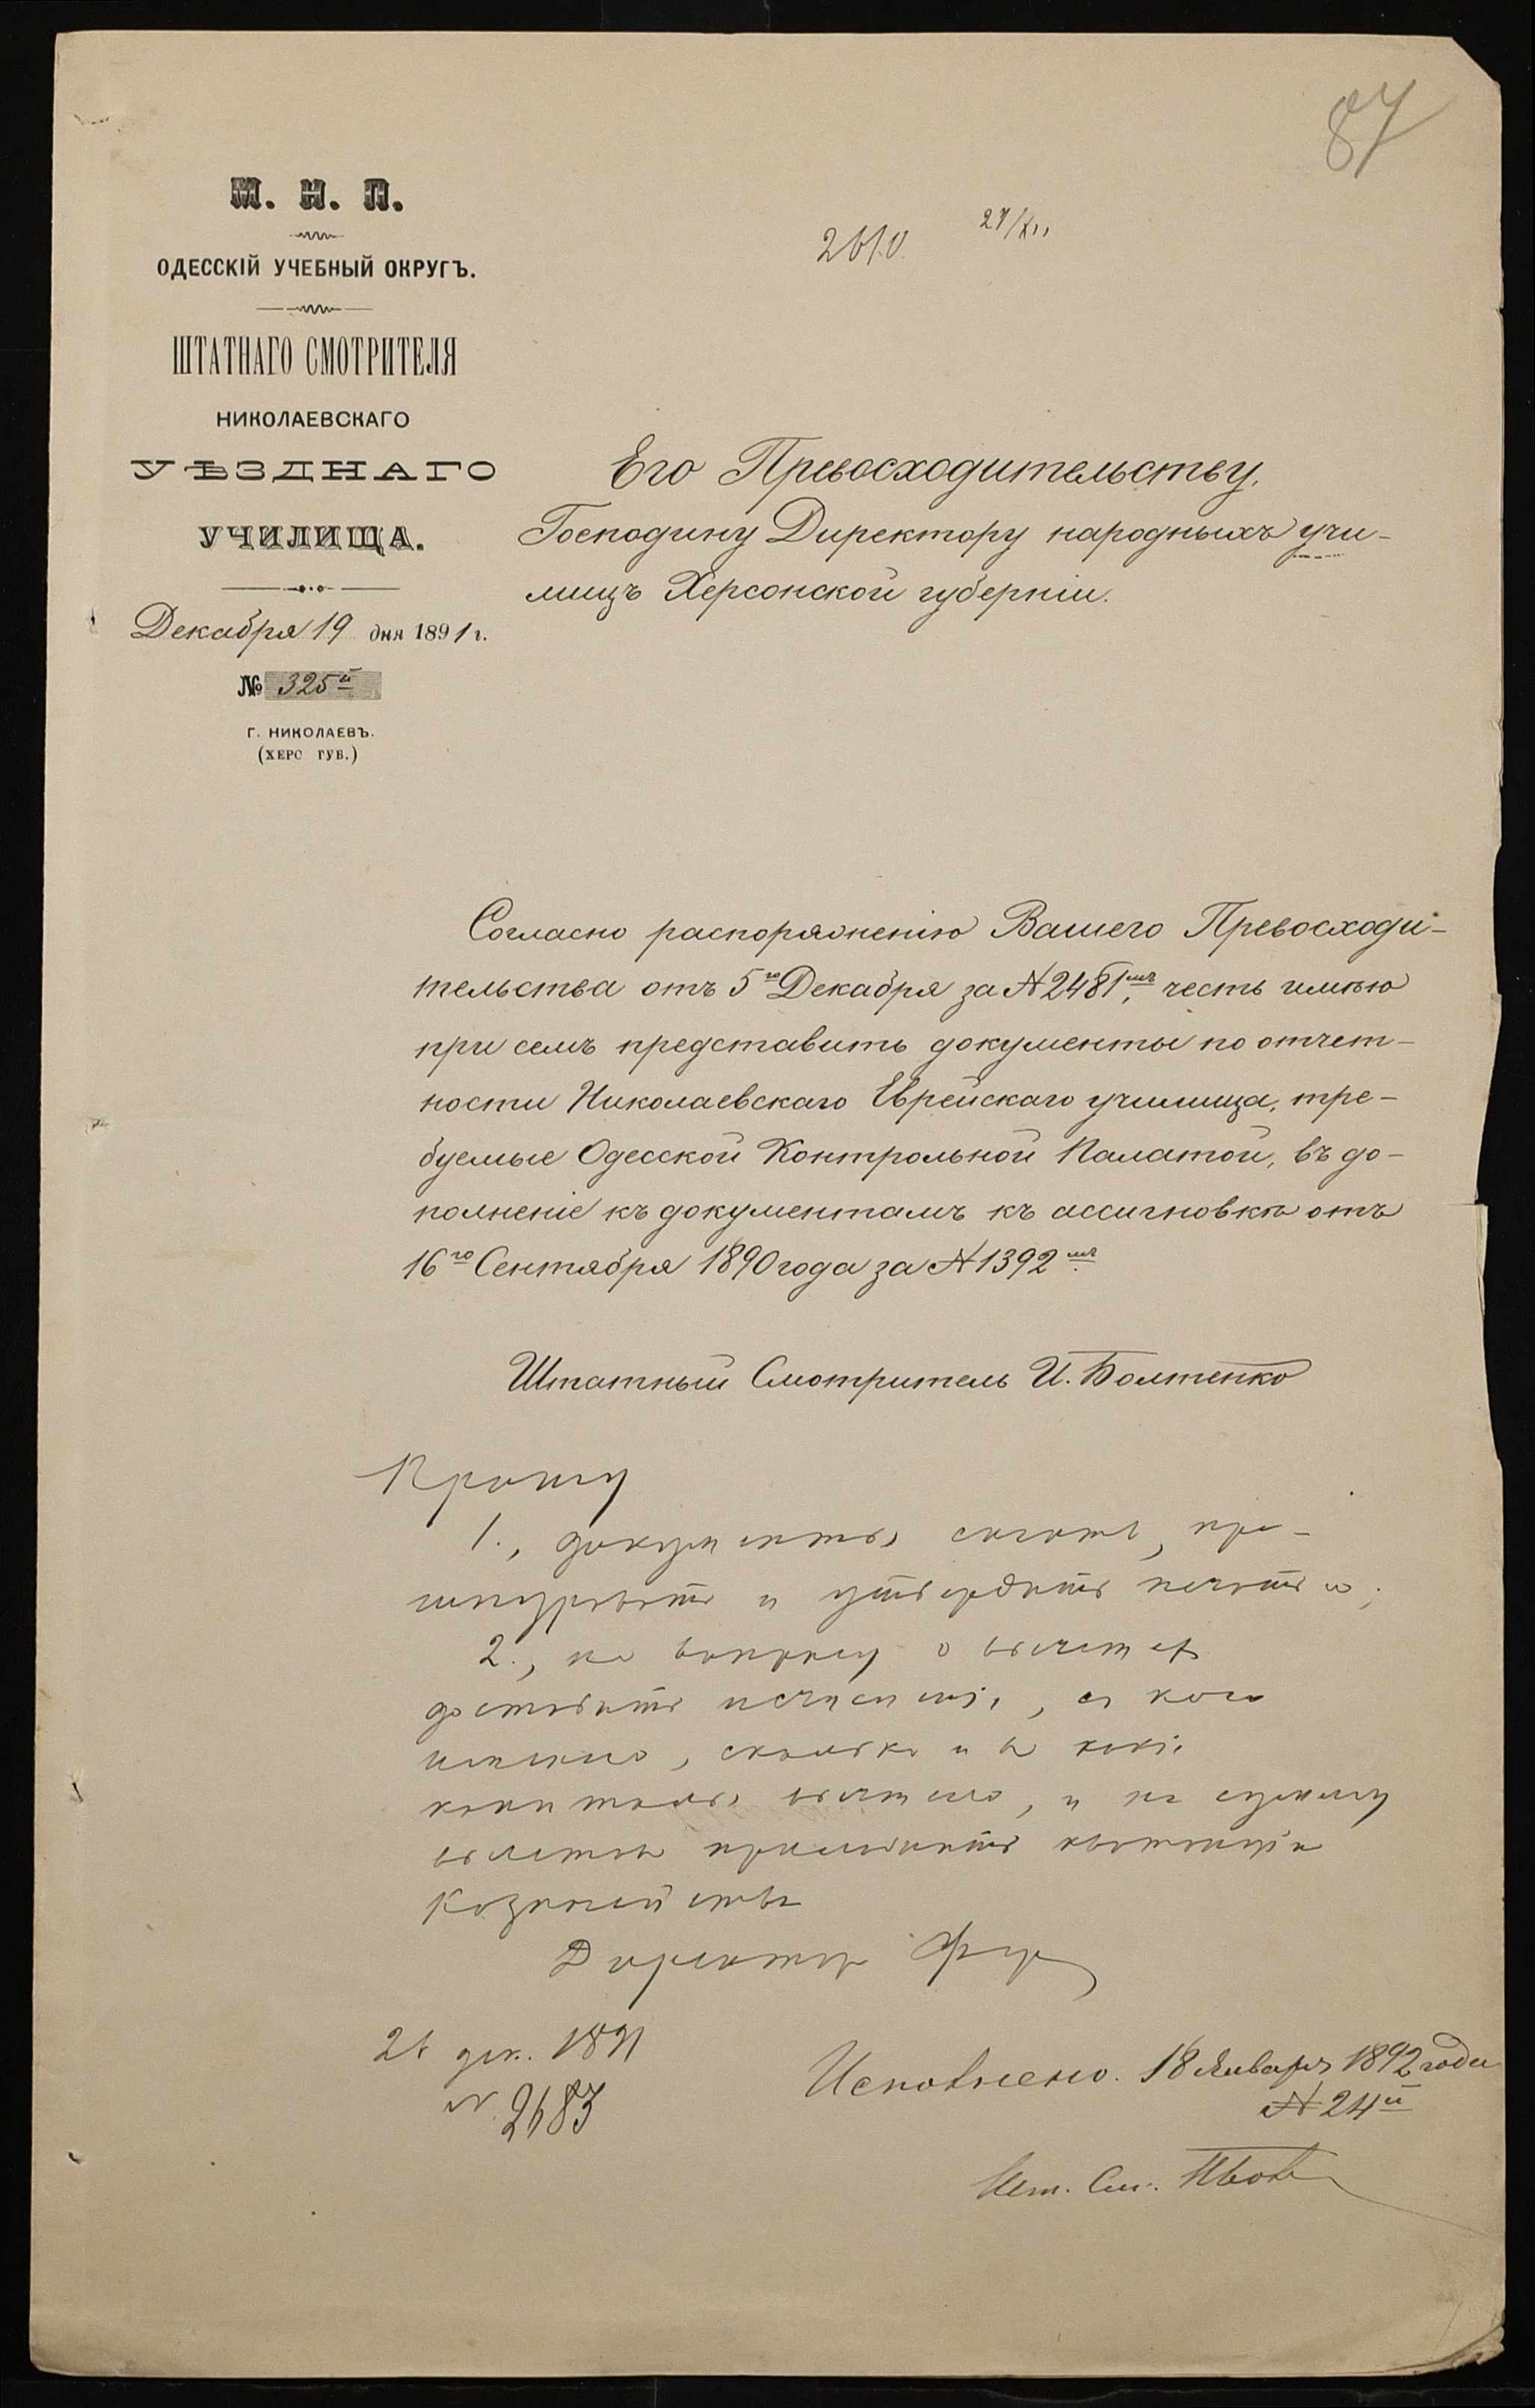 87
27/XII
М. Н. П.
ОДЕССКІЙ УЧЕБНЫЙ ОКРУГЪ.
ШТАТНАГО СМОТРИТЕЛЯ
НИКОЛАЕВСКАГО
УѢЗДНАГО
УЧИЛИЩА.
Декабря 19 дня 1891 г.
№ 325й
Г. НИКОЛАЕВЪ.
(ХЕРС ГУБ.)
Его Превосходительству,
Господину Директору народныхъ учи-
лищъ Херсонской губерніи.
Согласно распоряженію Вашего Превосходи-
тельства отъ 5го Декабря за № 2481мъ, честь имѣю
при семъ представить документы по отчет-
ности Николаевскаго Еврейскаго училища, тре-
буемые Одесской Контрольной Палатой, въ до-
полненіе къ документамъ къ ассигновкѣ отъ
16го Сентября 1890 года за № 1392мъ.
Штатный Смотритель И. Болтенко
Прошу
1., документы сшить, про-
шнуровать и утвердить печатью;
2., по вопросу о вычетѣ
доставить, съ кого
именно, сколько и въ какіе
капиталы вычтено, и на сумму
вычетовъ квитанціи
Казначейства
Директоръ
дек. 1891
№ 2683
Исполнено. 18 Января 1892 года
№ 24й
Шт. См.